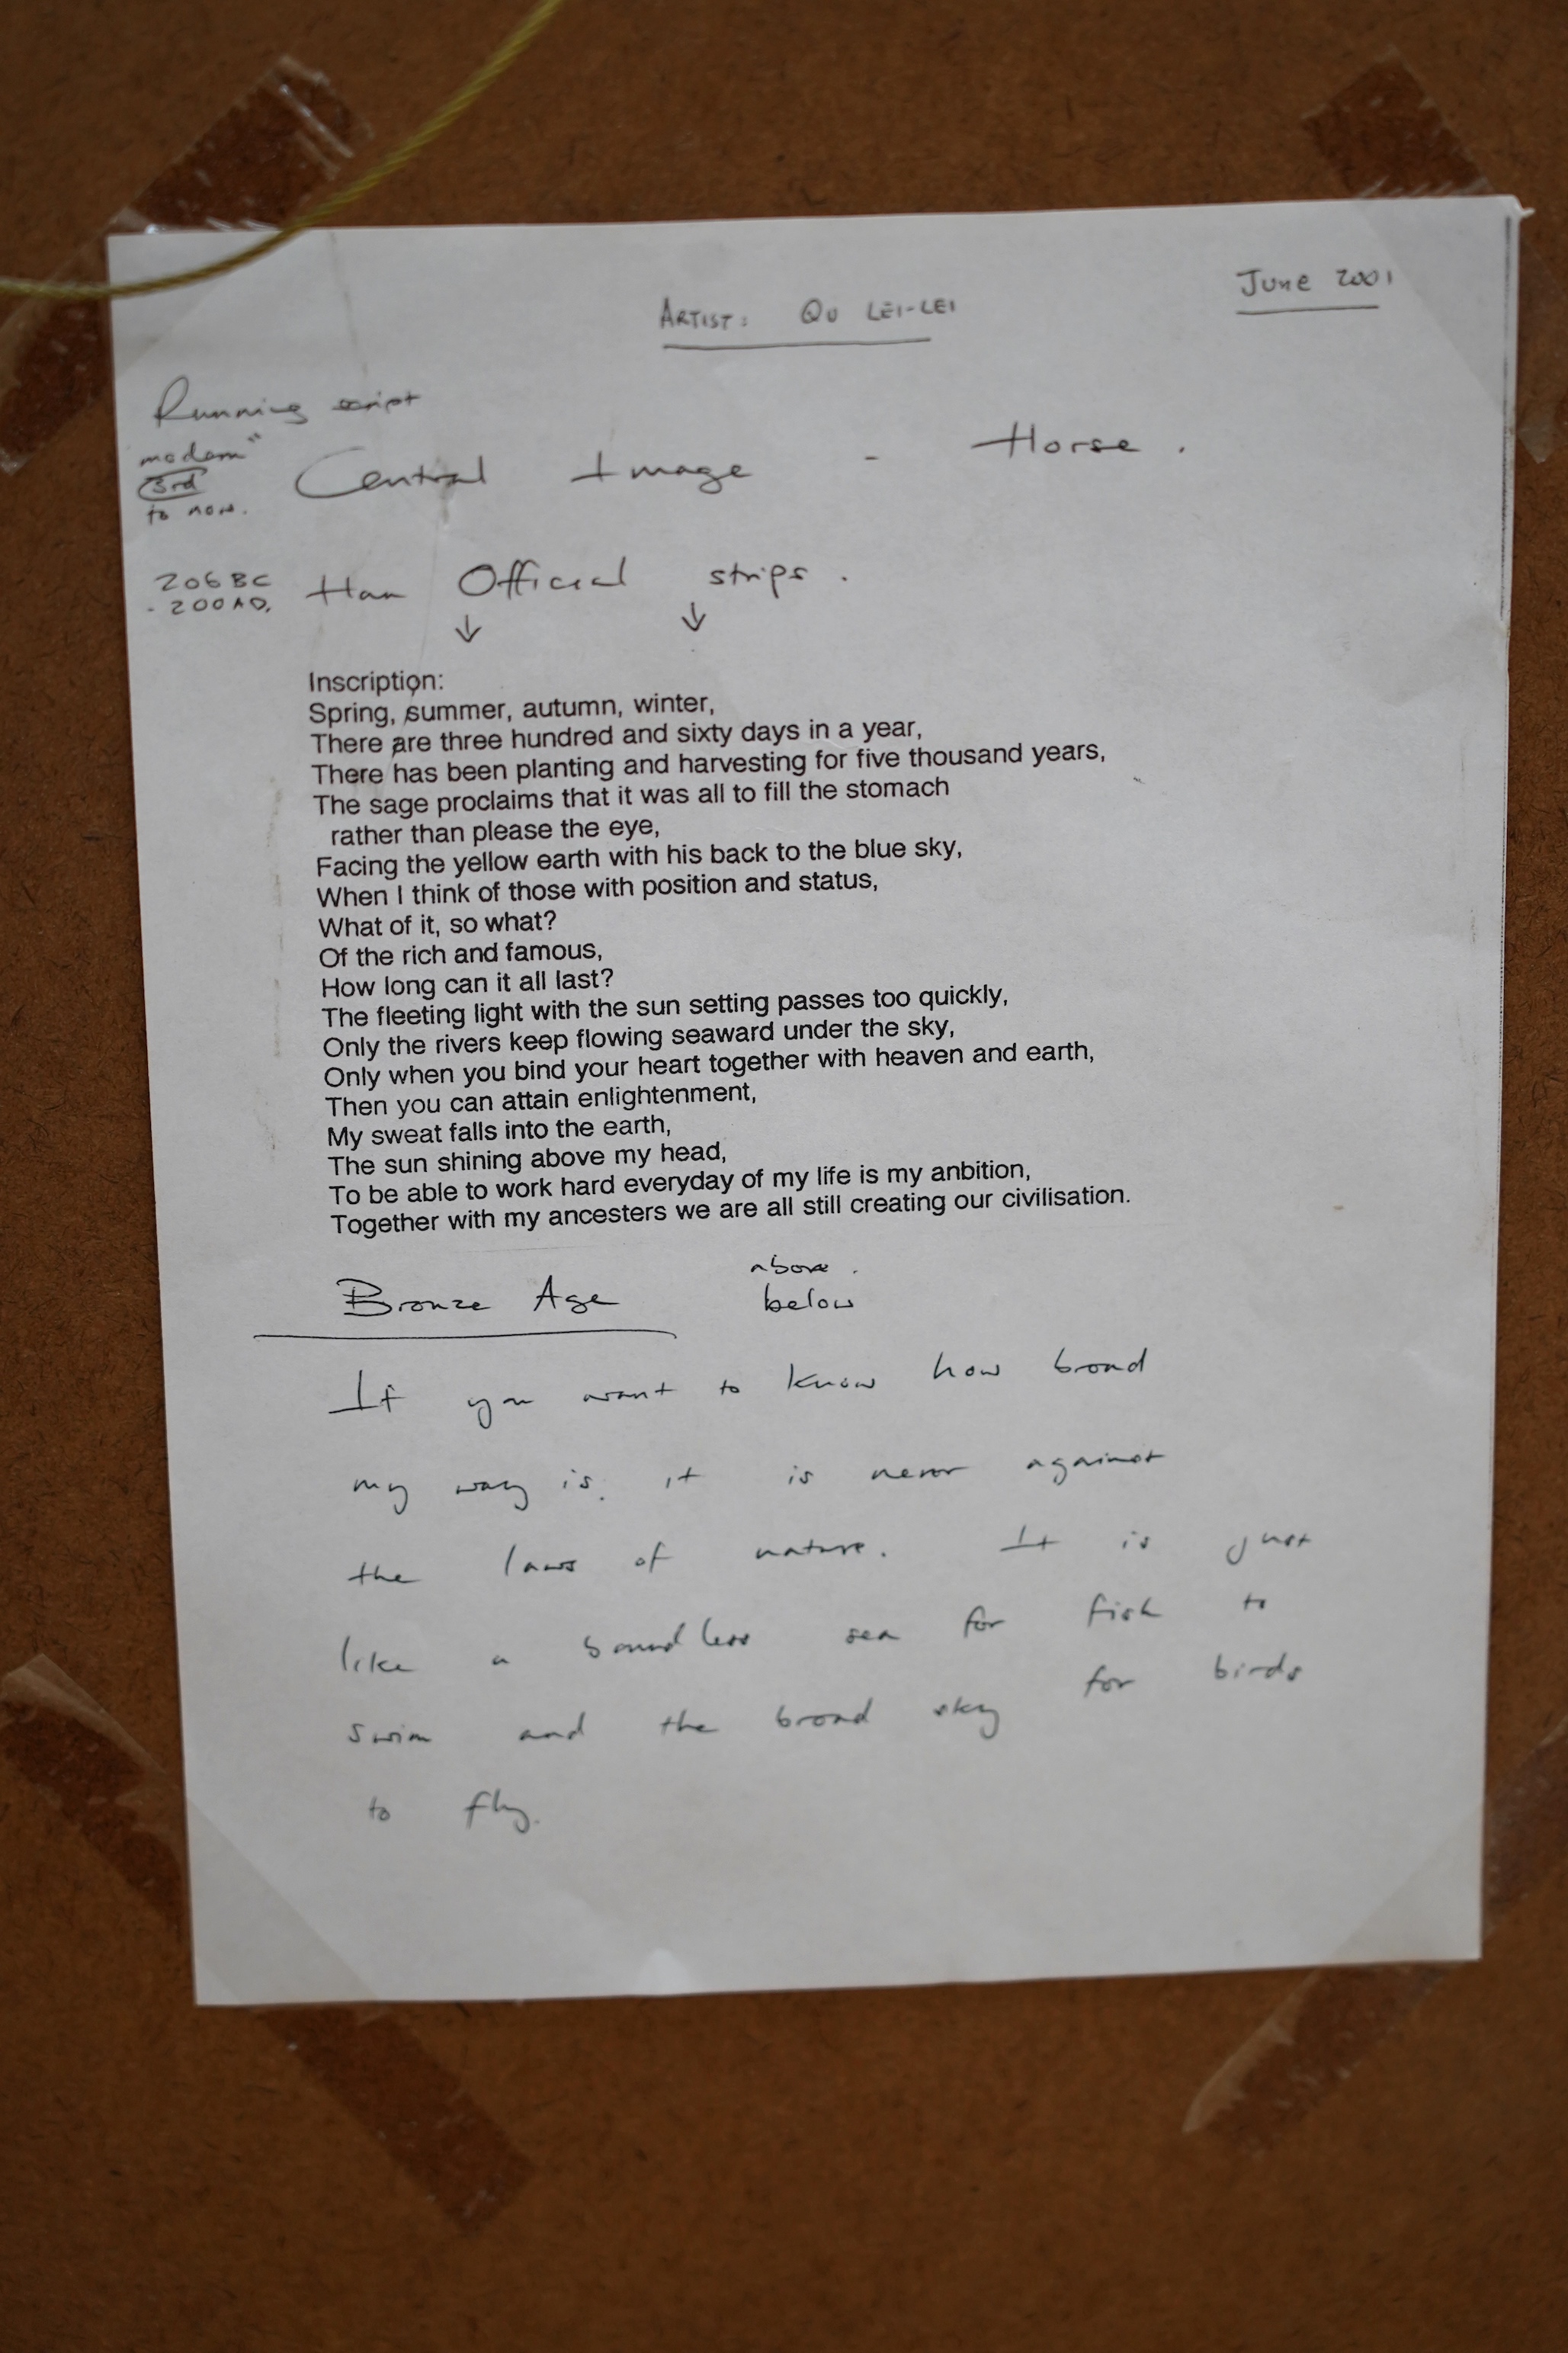 ARTIST: QU LEI-LEI
June 2001
Running script
modern"
3rd
to now.
Central Image - Horse.
206 BC
- 200 AD.
Han Official strips.
↓ ↓
Inscription:
Spring, summer, autumn, winter,
There are three hundred and sixty days in a year,
There has been planting and harvesting for five thousand years,
The sage proclaims that it was all to fill the stomach
rather than please the eye,
Facing the yellow earth with his back to the blue sky,
When I think of those with position and status,
What of it, so what?
Of the rich and famous,
How long can it all last?
The fleeting light with the sun setting passes too quickly,
Only the rivers keep flowing seaward under the sky,
Only when you bind your heart together with heaven and earth,
Then you can attain enlightenment,
My sweat falls into the earth,
The sun shining above my head,
To be able to work hard everyday of my life is my anbition,
Together with my ancesters we are all still creating our civilisation.
above.
Bronze Age below
If you want to know how broad
my way is, it is never against
the laws of nature. It is just
like a boundless sea for fish to
swim and the broad sky for birds
to fly.